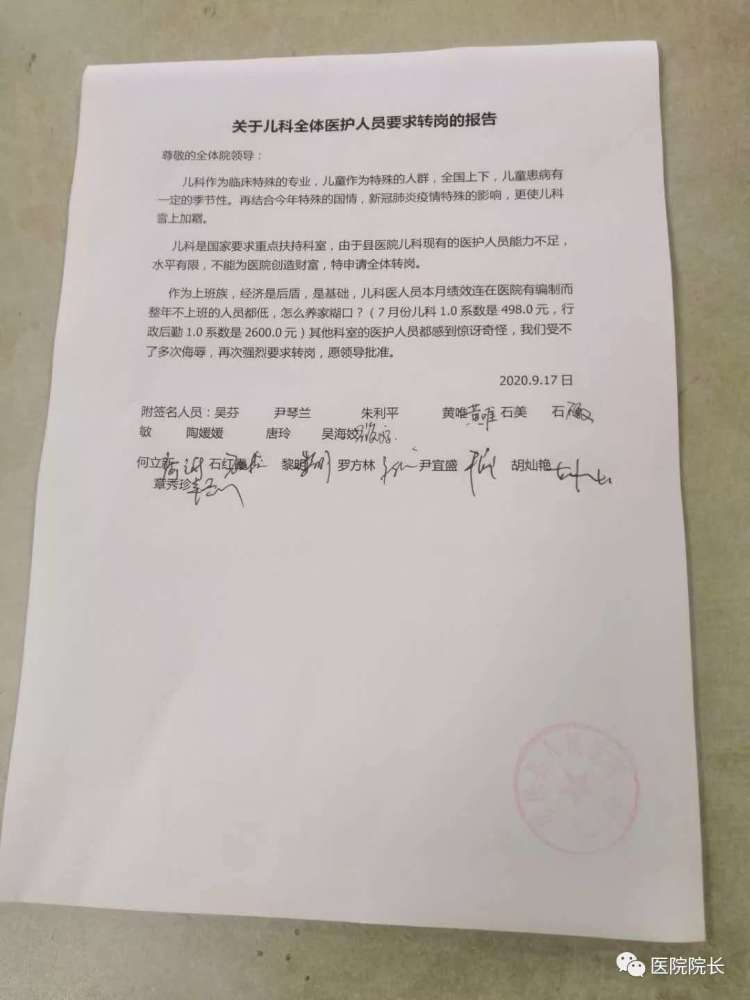 关于儿科全体医护人员要求转岗的报告
尊敬的全体院领导：
儿科作为临床特殊的专业，儿童作为特殊的人群，全国上下，儿童患病有
一定的季节性。再结合今年特殊的国情，新冠肺炎疫情特殊的影响，更使儿科
雪上加霜。
儿科是国家要求重点扶持科室，由于县医院儿科现有的医护人员能力不足，
水平有限，不能为医院创造财富，特申请全体转岗。
作为上班族，经济是后盾，是基础，儿科医人员本月绩效连在医院有编制而
整年不上班的人员都低，怎么养家糊口？（7月份儿科1.0系数是498.0元，行
政后勤1.0系数是2600.0元）其他科室的医护人员都感到惊讶奇怪，我们受不
了多次侮辱，再次强烈要求转岗，愿领导批准。
2020.9.17日
附签名人员：吴芬 尹琴兰 朱利平 黄唯 黄唯 石美 石
敏 陶媛媛 唐玲 吴海姣
何立新 石红 黎明 罗方林 尹宜盛 胡灿艳
章秀珍
医院院长